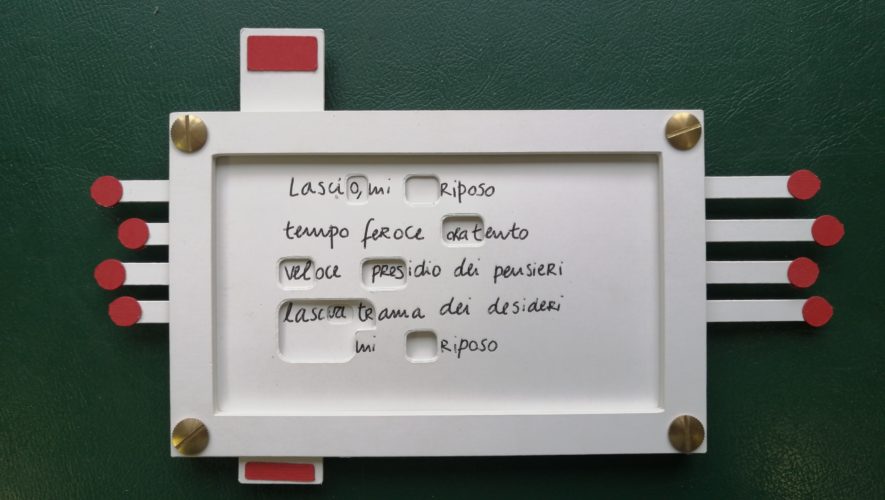 Lascio, mi Riposo
tempo feroce oratento
veloce presidio dei pensieri
lasciva trama dei desideri
mi Riposo